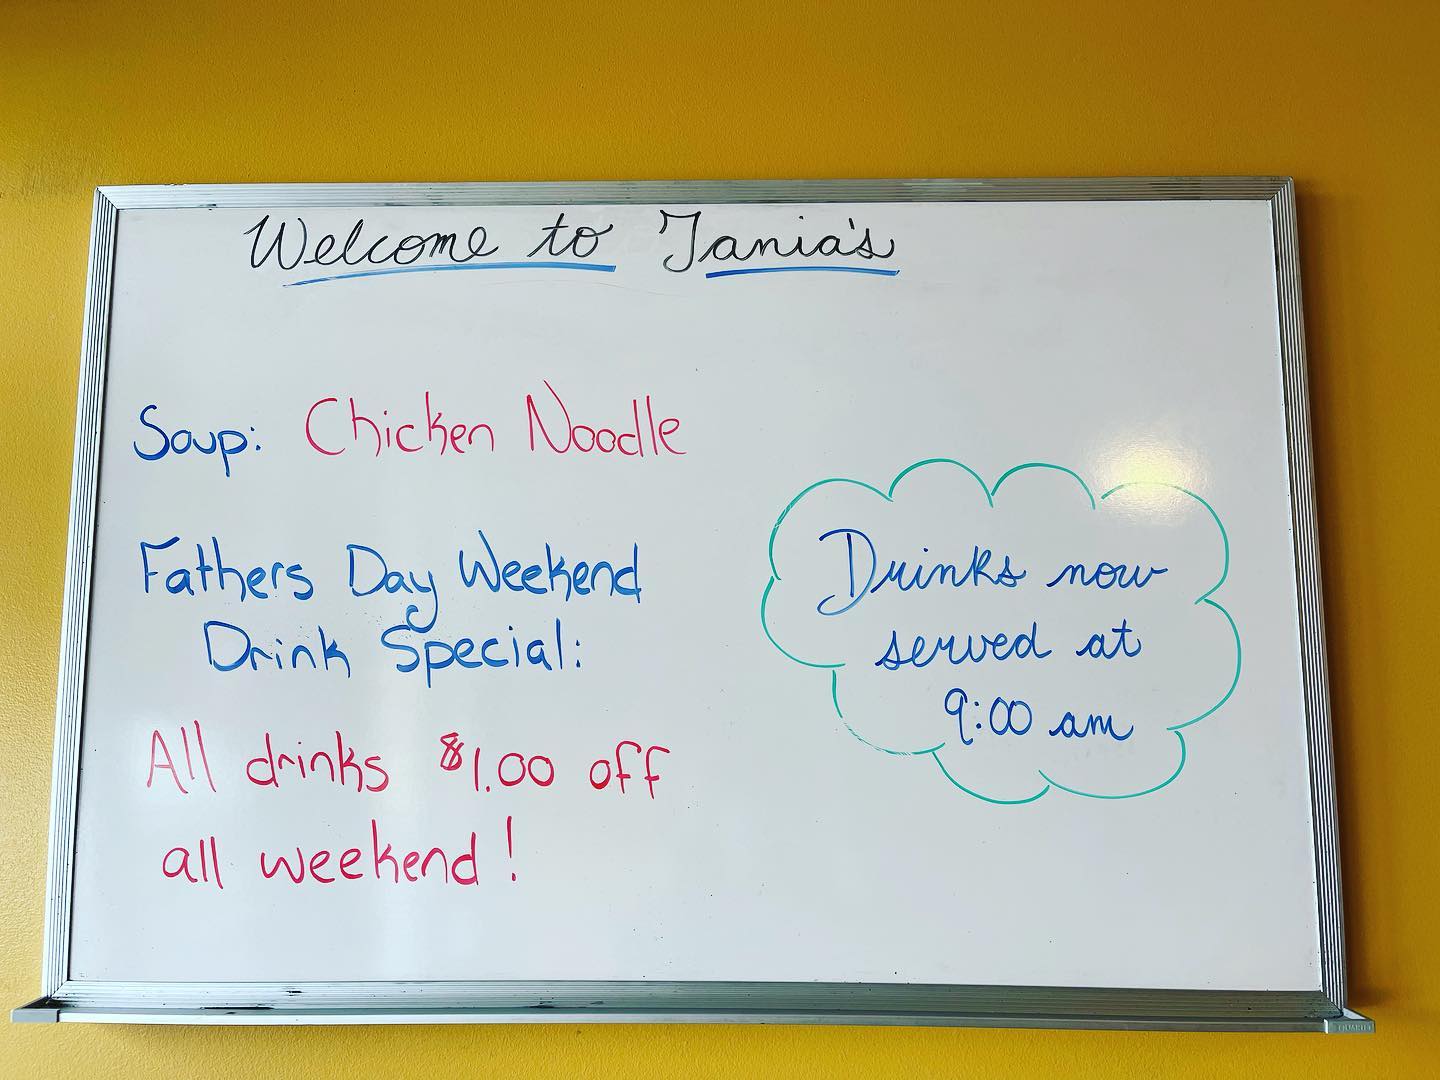 Welcome to Tania's
Soup: Chicken Noodle
Fathers Day Weekend
Drink Special:
All drinks $1.00 off
all weekend!
Drinks now
served at
9:00 am
QUARTET